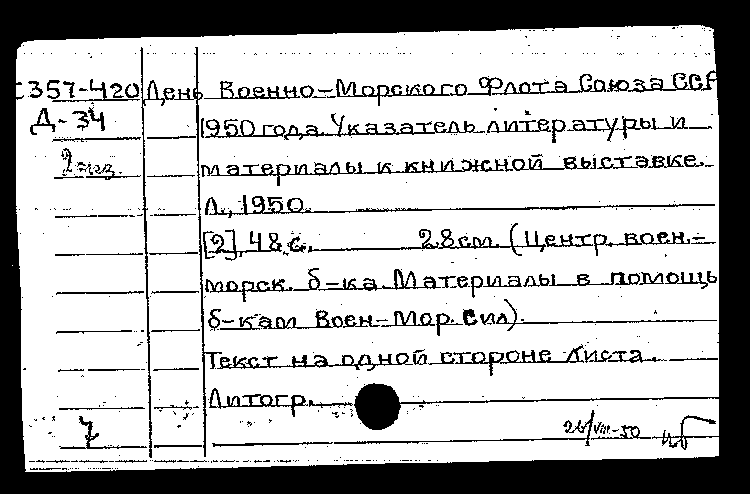 357-420 День Военно-Морского Флота Союза ССР
Д-34 1950 года. Указатель литературы и
2 экз. материалы к книжной выставке.
Л., 1950.
[2], 48 с. 28 см. (Центр. воен.-
морск. б-ка. Материалы в помощь
б-кам Воен-Мор. Сил).
Текст на одной стороне листа.
Литогр.
7 26/VIII-50